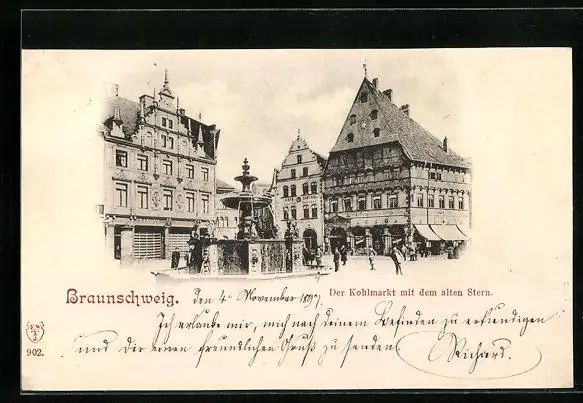 Braunschweig. den 4ten November 1897
Der Kohlmarkt mit dem alten Stern.
Ich erlaube mir, mich nach deinem Befinden zu erkundigen
und Dir einen freundlichen Gruß zu senden.
Richard.
902.